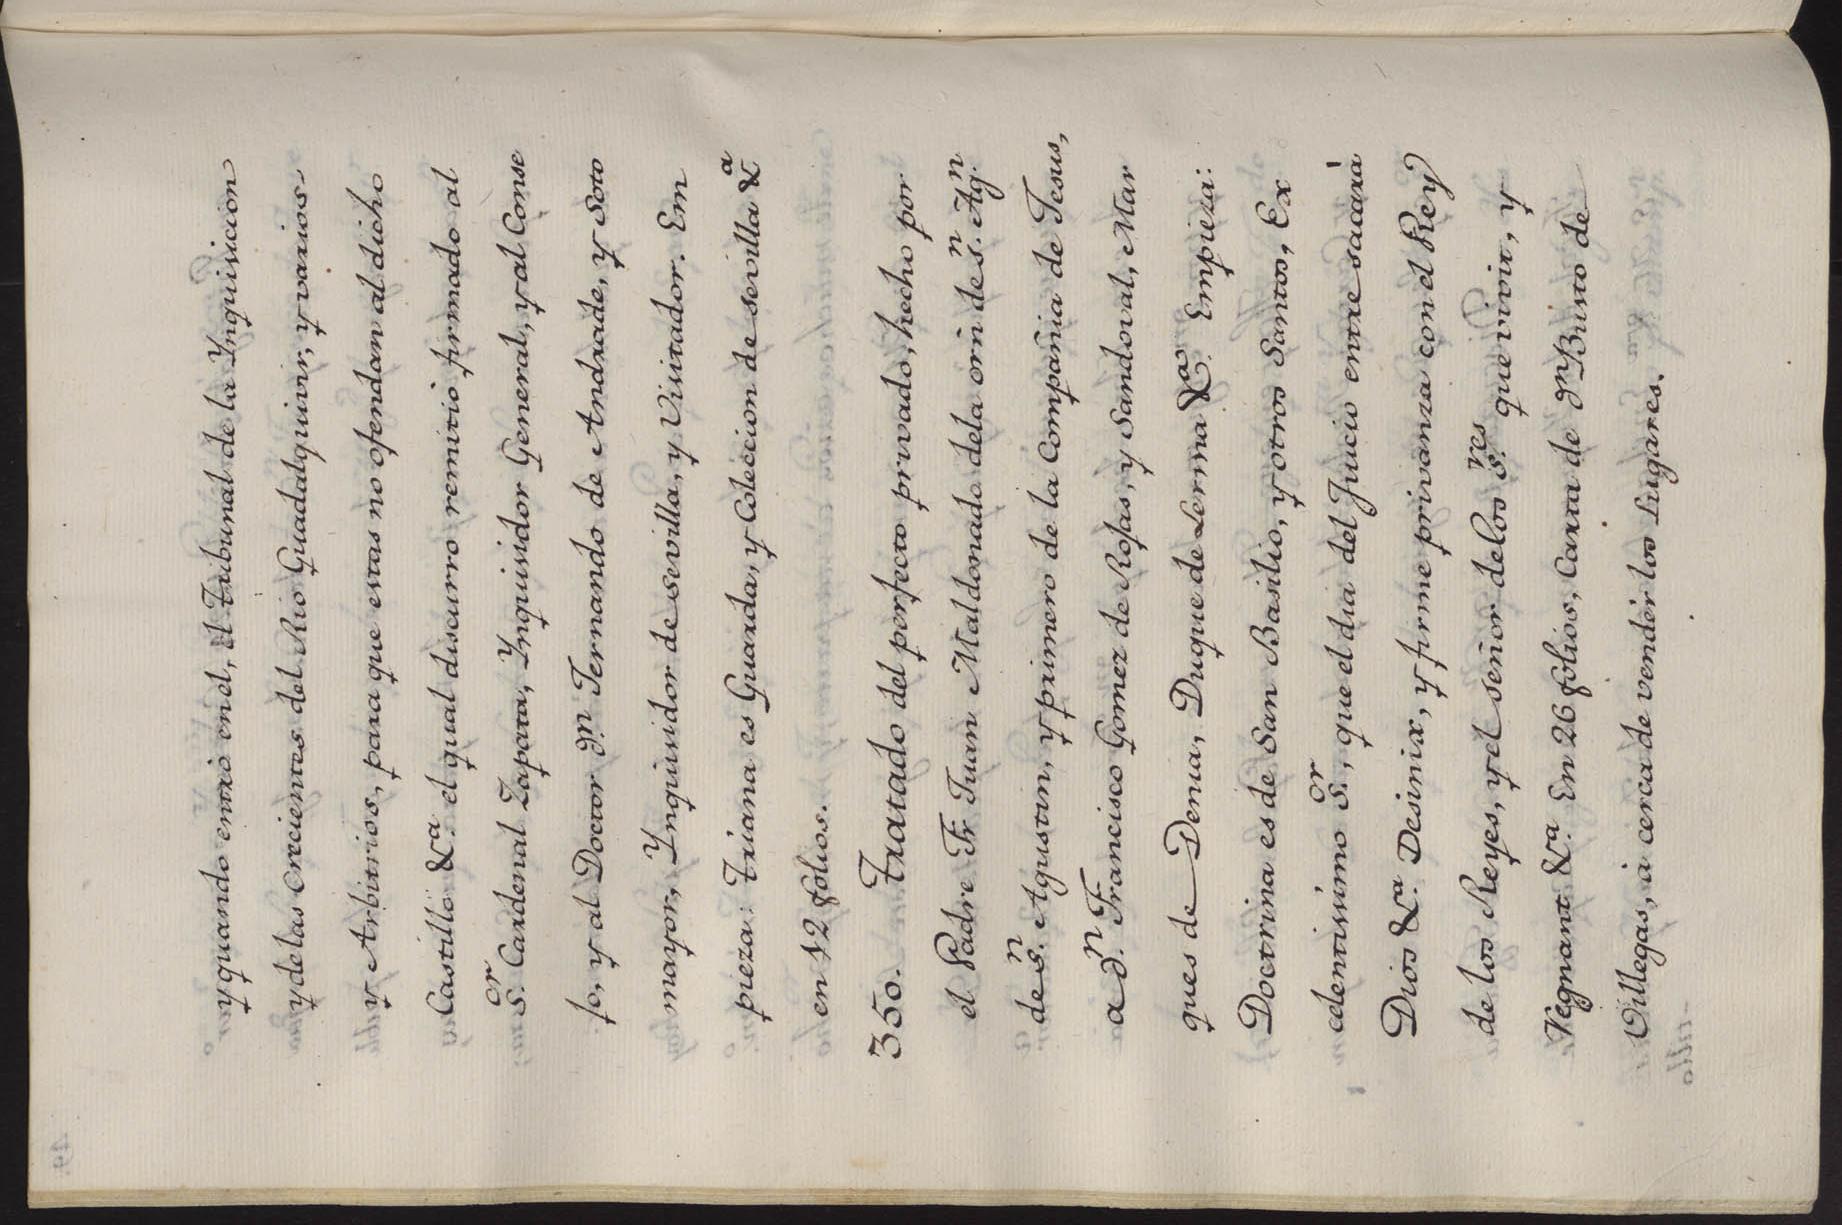 y quando entró en el, el Tribunal de la Ynquisicion
y de las Crecientes del Rio Guadalquivir, y varios
y Arbitrios, para que estas no ofendan al dicho
Castillo &.ª el qual discurro remitió firmado al
S.or Cardenal Zapata, Ynquisidor General, y al Conse
jo, y al Doctor d.n Fernando de Andrade, y Soto
mayor, Ynquisidor de Sevilla, y Visitador. Em
pieza: Triana es Guarda, y Coleccion de Sevilla &ª
en 12 folios.
350. Tratado del perfecto privado, hecho por
el Padre Fr. Juan Maldonado de la orn de S.n Ag.n
de S.n Agustin, y primero de la Compañia de Jesus,
a d.n Francisco Gomez de Rojas, y Sandoval, Mar
ques de Denia, Duque de Lerma &.ª Empieza:
Doctrina es de San Basilio, y otros Santos, Ex
celentissimo S.or, que el dia del Juicio entresacarà
Dios &.ª Desinix, y firme privanza con el Rey
de los Reyes, y el Señor de los S.res que vivit, y
Regnant &.ª En 26 folios, Carta de d.n Busto de
Villegas, à cerca de vender los Lugares.